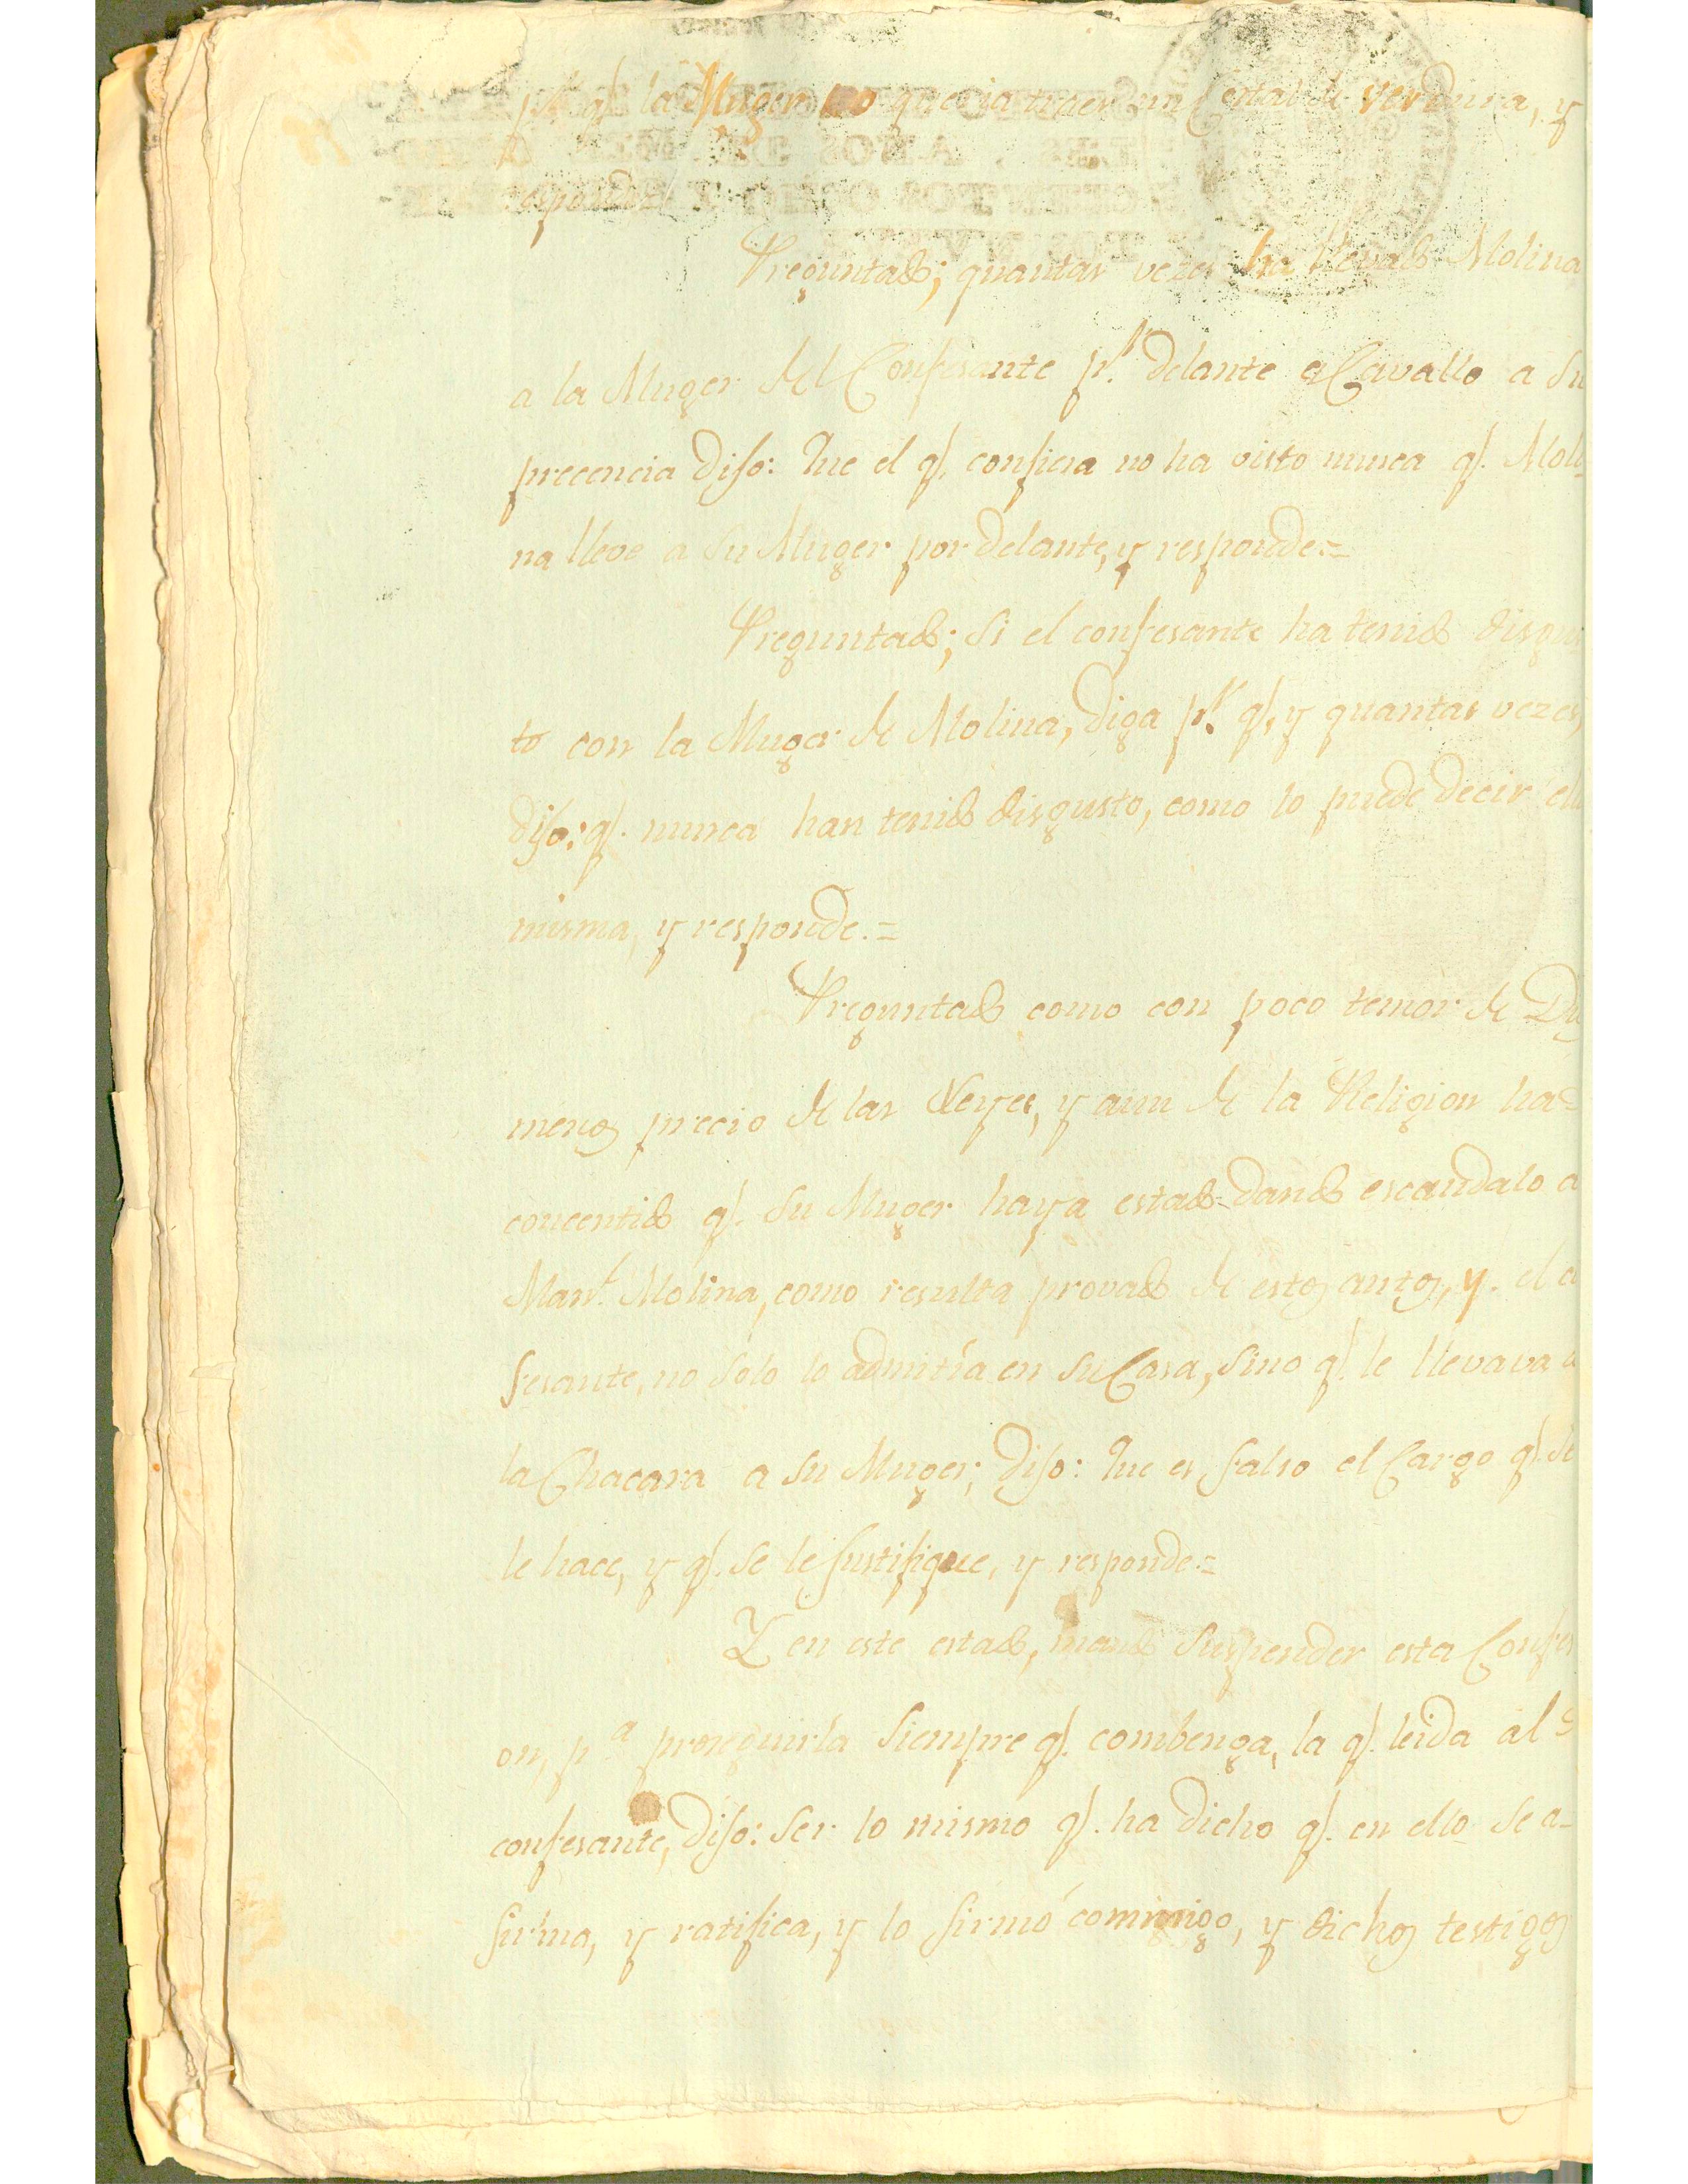 q.e la Muger no queria traer un Costal de verdura, y
responde
Preguntado; quantas vezes ha llevado Molina
a la Muger del Confesante p.r delante a Cavallo a su
precencia dijo: Que el q.e confiesa no ha visto nunca q.e Moli-
na lleve a su Muger por delante, y responde.=
Preguntado; si el confesante ha tenido disgus
to con la Muger de Molina, diga p.r q.e, y quantas vezes,
dijo: q.e nunca han tenido disgusto, como lo puede decir ella
misma, y responde.=
Preguntado como con poco temor de Di
menos precio de las Leyes, y aun de la Religion ha=
concentido q.e su Muger haya estado dando escandalo a
Man.l Molina, como resulta provado de estos autos, y. el a
fesante, no solo lo admitía en su Casa, sino q.e le llevava a
la Chacara a su Muger; dijo: Que es falso el Cargo q.e se
le hace, y q.e se le justifique, y responde.=
Y en este estado, mandó suspender esta Confesi
on, p.a proseguirla siempre q.e combenga, la q.e leida al
confesante, dijo: ser lo mismo q.e ha dicho q.e en ello se a-
firma, y ratifica, y lo firmó commigo, y dichos testigos